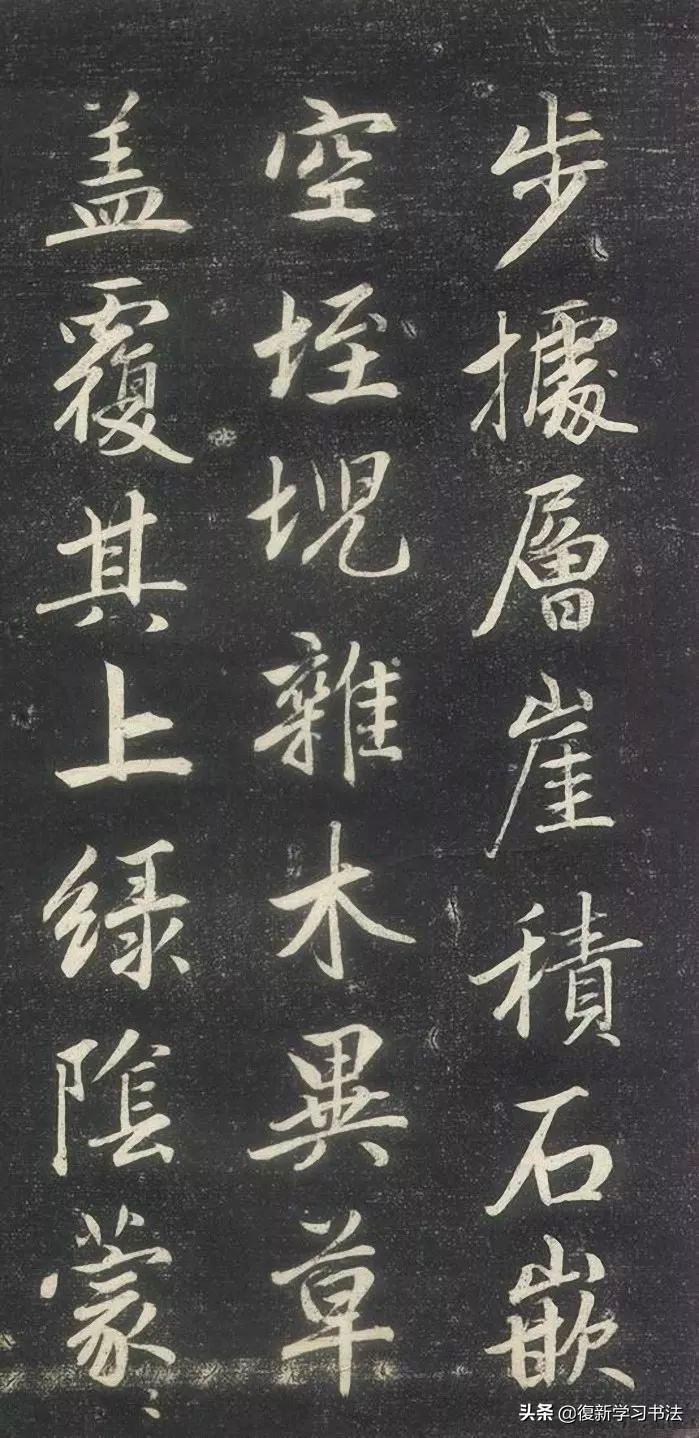 步據層崖積石嵌
空垤堄雜木異草
盖覆其上綠陰蒙〻
头条 @復新学习书法